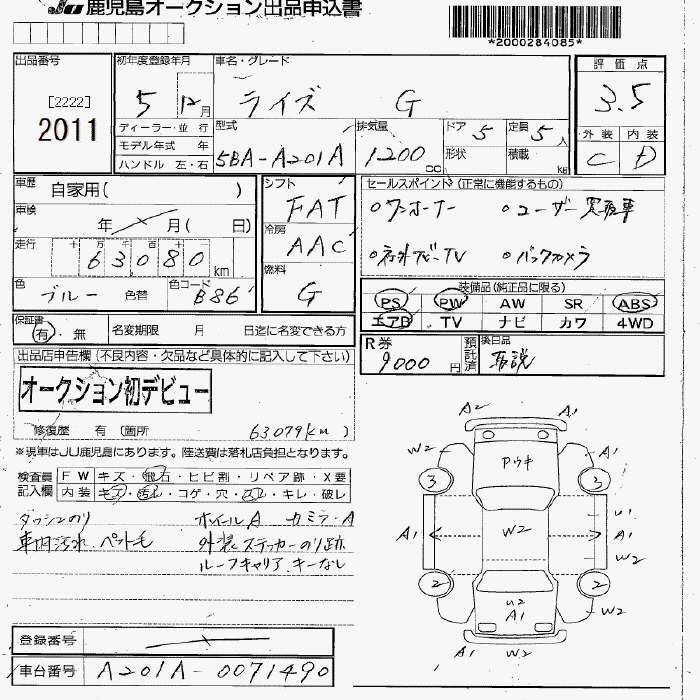 JU 鹿児島オークション出品申込書
*2000284085*
出品番号
[2222]
2011
初年度登録年月
5 12月
車名・グレード
ライズ G
評価点
3.5
外装 内装
C D
ディーラー・並行
モデル年式 年
ハンドル 左・右
型式
5BA-A201A
排気量
1200 cc
ドア 5
形状
定員 5人
積載 kg
車歴
自家用( )
車検
年 月( 日)
走行
十 万 千 百 十 一
63080 km
色
ブルー 色替
色コード
B86
シフト
FAT
冷房
AAC
燃料
G
セールスポイント(正常に機能するもの)
○ワンオーナー ○ユーザー買取車
○ネオ外ナビーTV ○バックカメラ
装備品(純正品に限る)
PS PW AW SR ABS
エアB TV ナビ カワ 4WD
保証書
有・無
名変期限 月 日迄に名変できる方
R券
9000円
預託済
後日品
取説
出品店申告欄(不良内容・欠品など具体的に記入して下さい)
オークション初デビュー
修復歴 有(箇所 63079km)
※現車はJU鹿児島にあります。陸送費は落札店負担となります。
検査員記入欄
FW キズ・飛石・ヒビ割・リペア跡・X要
内装 キズ・汚れ・コゲ・穴・スレ・キレ・破レ
ダッシュのり ホイールA カミテーA
車内汚れ、ペット毛 外装ステッカーのり跡
ルーフキャリア、キーなし
登録番号
車台番号 A201A-0071490
A2 A1
W2 Pウキ A1
3 3
U1
A1 W2 A1
W2
2 2
U2
A1 W2
A1 W2